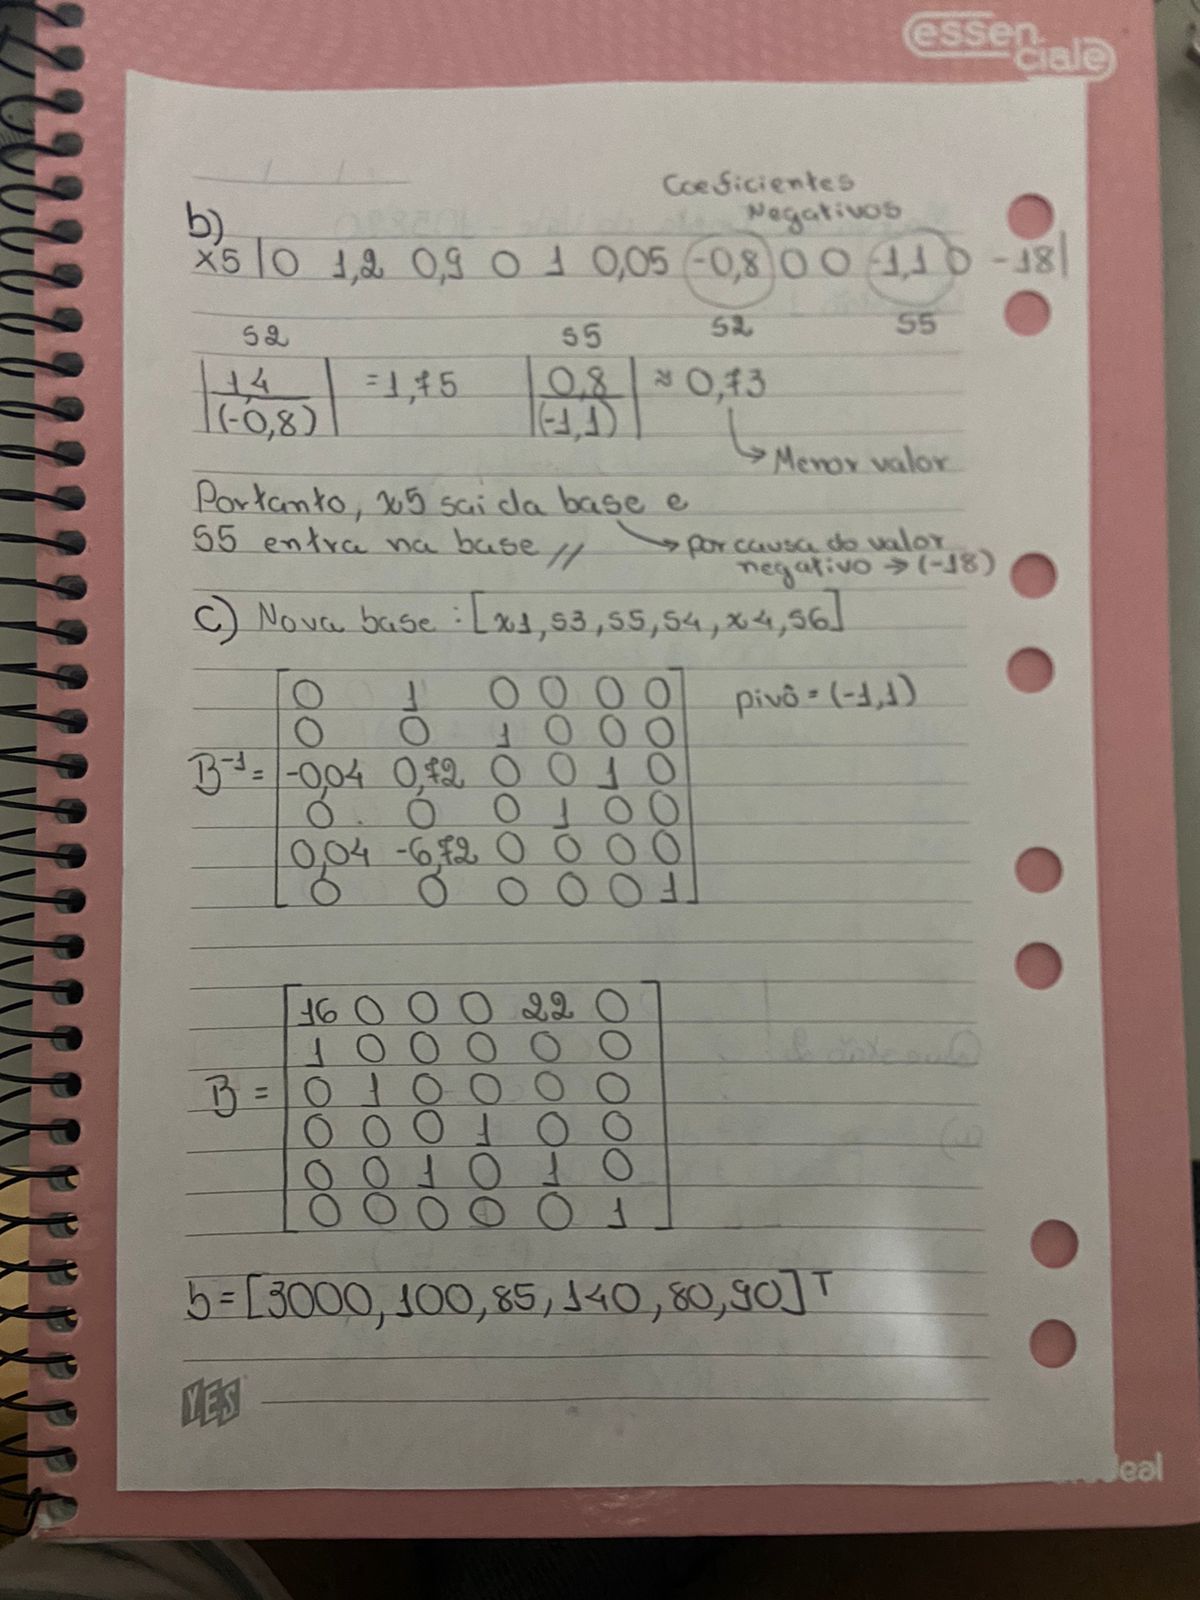 essen
ciale
Coeficientes
Negativos
b)
x5 | 0 1,2 0,9 0 1 0,05 -0,8 0 0 -1,1 0 -18 |
S2 S5 S2 S5
| 1,4 / (-0,8) | = 1,75 | 0,8 / (-1,1) | ≈ 0,73
→ Menor valor
Portanto, x5 sai da base e
S5 entra na base // → por causa do valor
negativo → (-18)
c) Nova base: [x1, S3, S5, S4, x4, S6]
0 1 0 0 0 0 pivô = (-1,1)
0 0 1 0 0 0
B⁻¹ = -0,04 0,72 0 0 1 0
0 0 0 1 0 0
0,04 -6,72 0 0 0 0
0 0 0 0 0 1
16 0 0 0 22 0
1 0 0 0 0 0
B = 0 1 0 0 0 0
0 0 0 1 0 0
0 0 1 0 1 0
0 0 0 0 0 1
b = [3000, 100, 85, 140, 80, 90] T
YES
deal